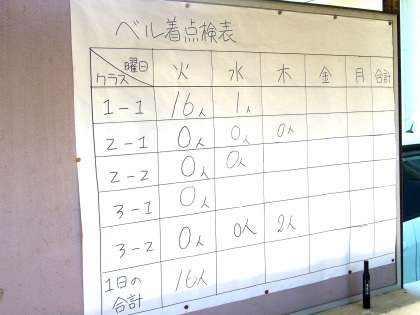 ベル着点検表
曜日 クラス 火 水 木 金 月 合計
1-1 16人 1人
2-1 0人 0人 0人
2-2 0人 0人
3-1 0人
3-2 0人 0人 2人
1日の合計 16人